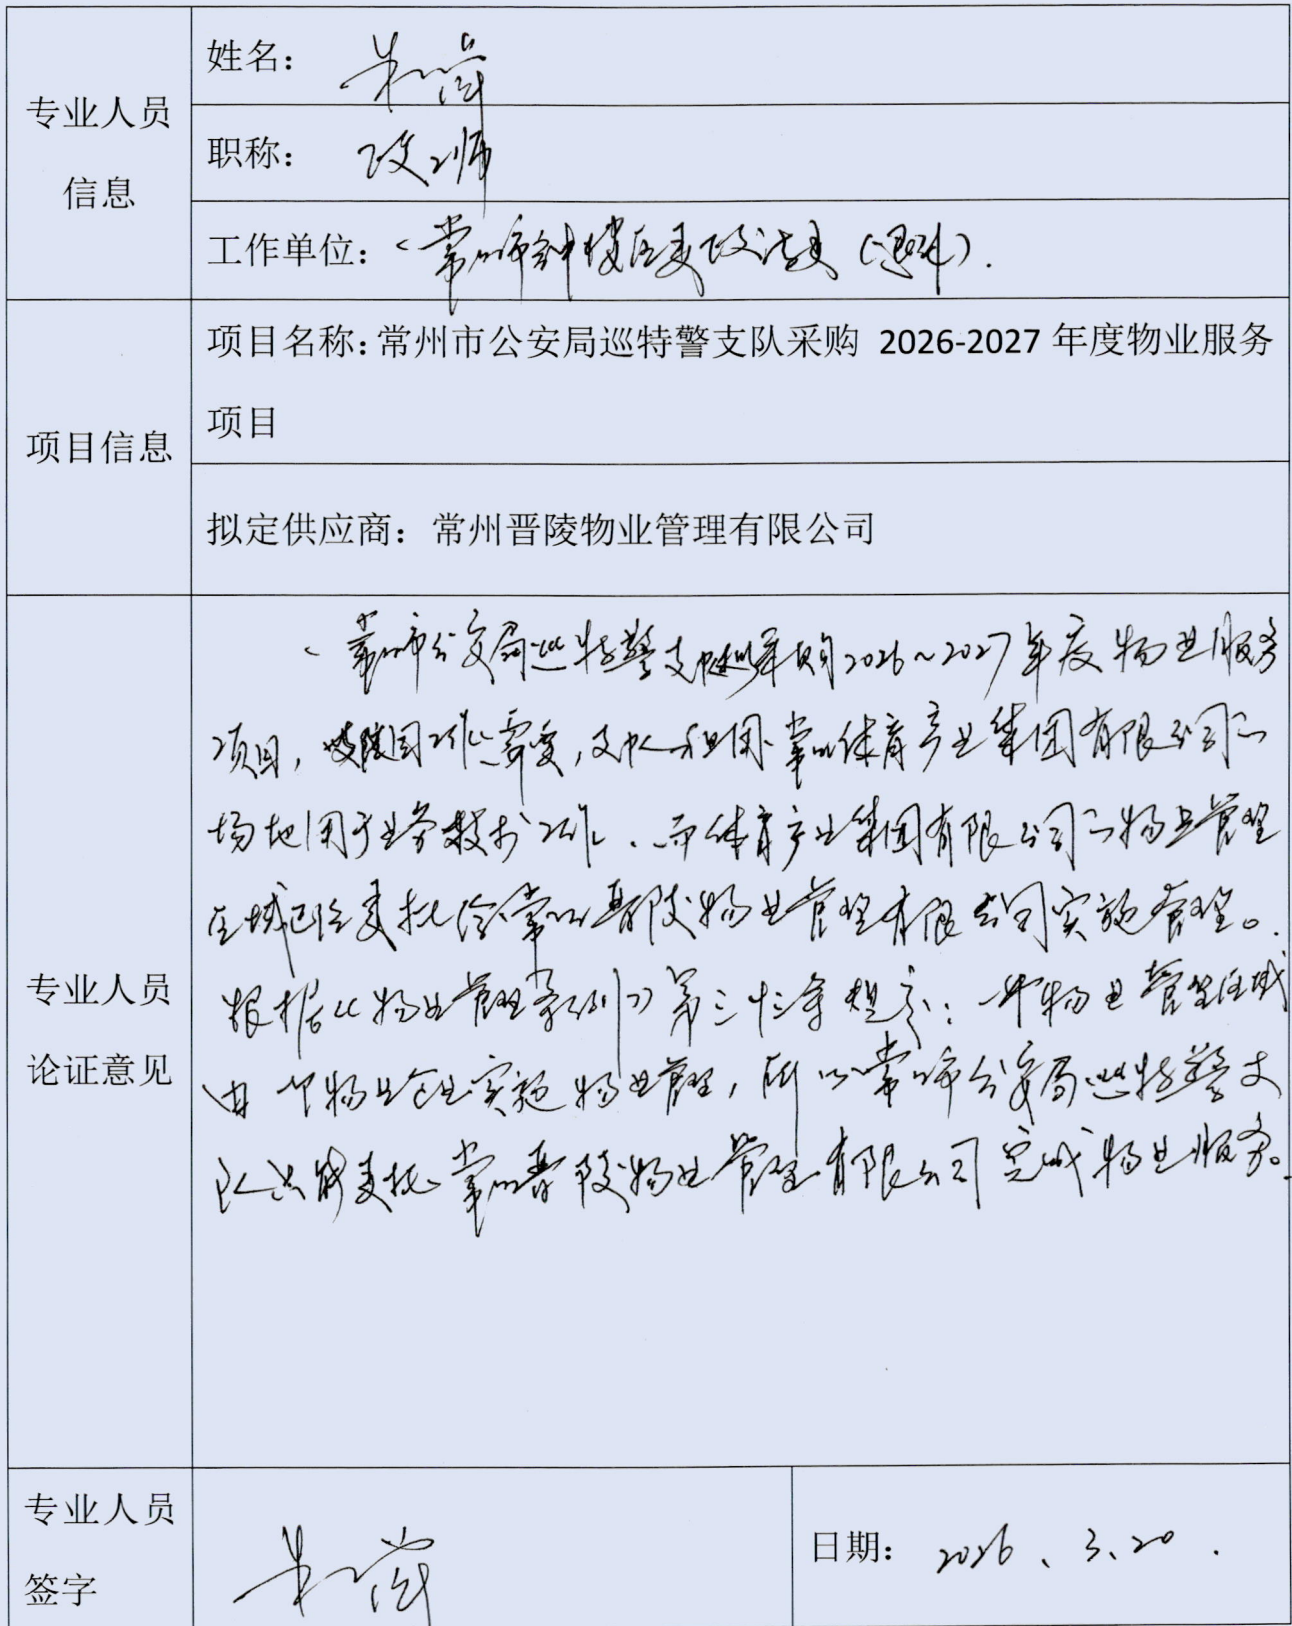 专业人员
信息
姓名：朱
职称：政工师
工作单位：常州市钟楼区委政法委（退休）.
项目信息
项目名称：常州市公安局巡特警支队采购 2026-2027 年度物业服务
项目
拟定供应商：常州晋陵物业管理有限公司
专业人员
论证意见
常州市公安局巡特警支队采购2026~2027年度物业服务
项目，因工作需要，支队租用常州体育产业集团有限公司的
场地用于业务技术工作．而体育产业集团有限公司的物业管理
区域已经委托给常州晋陵物业管理有限公司实施管理。
根据《物业管理条例》第三十三条规定：一个物业管理区域
由一个物业企业实施物业管理，所以常州市公安局巡特警支
队只能委托常州晋陵物业管理有限公司完成物业服务。
专业人员
签字
朱
日期：2026、3、20．